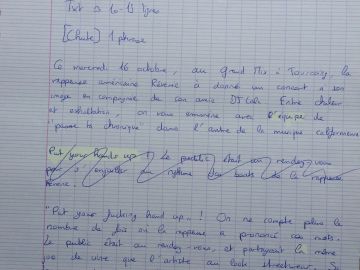 Txt de 10-15 lignes
[Chute] 1 phrase
Ce mercredi 16 octobre, au Grand Mix à Tourcoing, la
rappeuse américaine Reverie a donné un concert à son
image en compagnie de son amie DJ Lala. Entre chaleur
et exhaltation, on vous emmène avec l'équipe de
"passe ta chronique" dans l'antre de la musique californienne
Put your hands up ! Le public était au rendez-vous
pour s' au rythme des beats de la rappeuse
Reverie.
"Put your fucking hand up..! On ne compte plus le
nombre de fois où la rappeuse a prononcé ces mots.
Le public était au rendez-vous, et partageait la même
joie de vivre que l'artiste au look